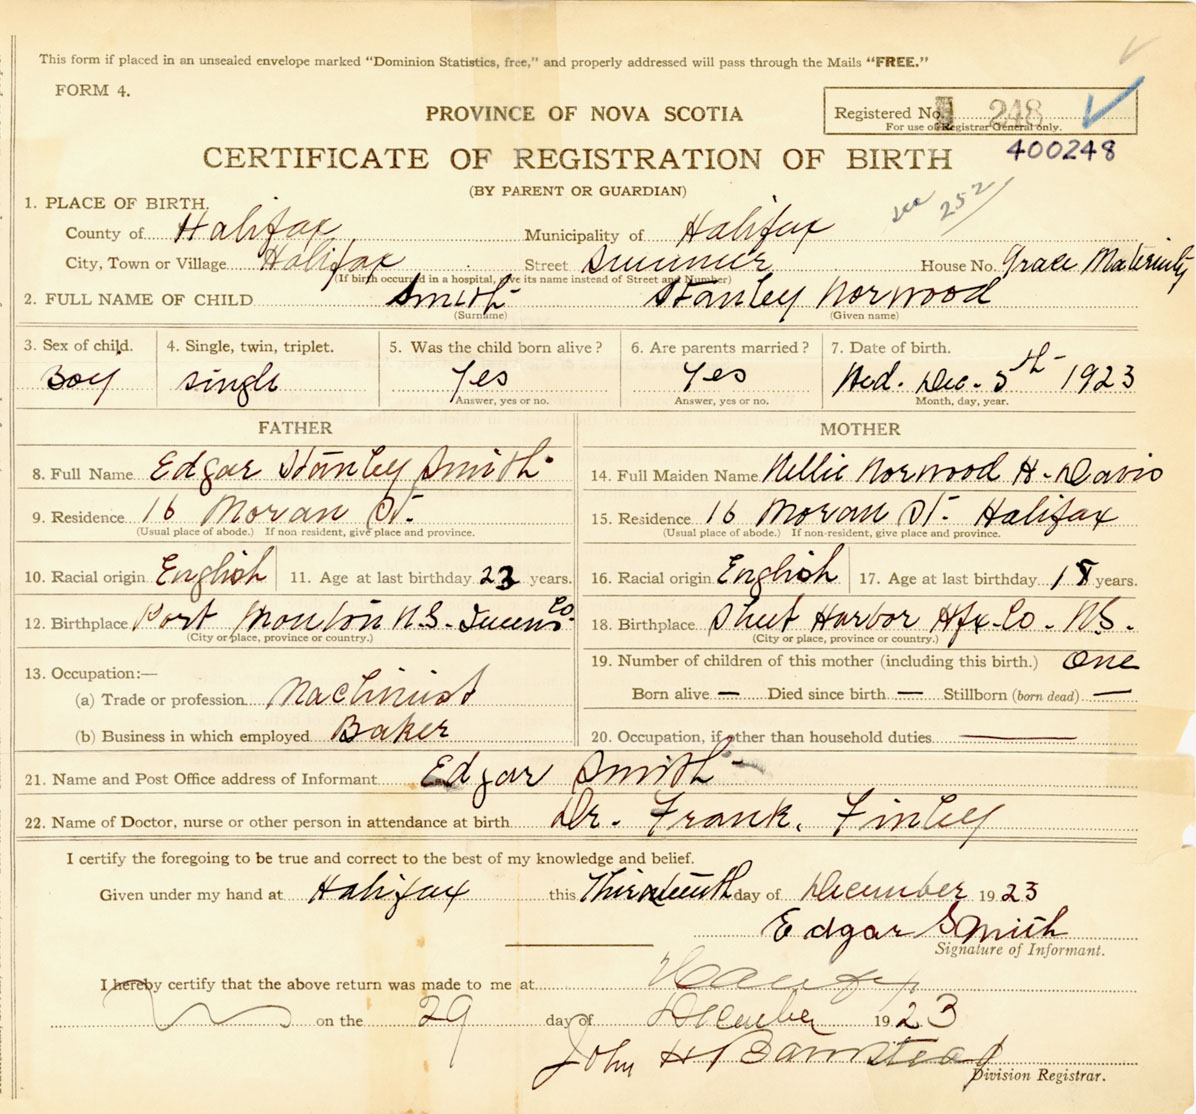 This form if placed in an unsealed envelope marked "Dominion Statistics, free," and properly addressed will pass through the Mails "FREE."
FORM 4.
PROVINCE OF NOVA SCOTIA
Registered No. 248
For use of Registrar General only.
CERTIFICATE OF REGISTRATION OF BIRTH
400248
(BY PARENT OR GUARDIAN)
see 252
1. PLACE OF BIRTH.
County of Halifax Municipality of Halifax
City, Town or Village Halifax Street Summer House No. Grace Maternity
(If birth occurred in a hospital, give its name instead of Street and Number)
2. FULL NAME OF CHILD Smith Stanley Norwood
(Surname) (Given name)
3. Sex of child. 4. Single, twin, triplet. 5. Was the child born alive? 6. Are parents married? 7. Date of birth.
Boy single Yes Yes Wed. Dec. 5th 1923
Answer, yes or no. Answer, yes or no. Month, day, year.
FATHER MOTHER
8. Full Name Edgar Stanley Smith 14. Full Maiden Name Nellie Norwood H. Davis
9. Residence 16 Moran St. 15. Residence 16 Moran St. Halifax
(Usual place of abode.) If non resident, give place and province. (Usual place of abode.) If non-resident, give place and province.
10. Racial origin English 11. Age at last birthday 23 years. 16. Racial origin English 17. Age at last birthday 18 years.
12. Birthplace Port Mouton N.S. Queens Co 18. Birthplace Sheet Harbor Hfx. Co. N.S.
(City or place, province or country.) (City or place, province or country.)
13. Occupation:— 19. Number of children of this mother (including this birth.) One
(a) Trade or profession Machinist Born alive — Died since birth — Stillborn (born dead) —
(b) Business in which employed Baker 20. Occupation, if other than household duties —
21. Name and Post Office address of Informant Edgar Smith
22. Name of Doctor, nurse or other person in attendance at birth Dr. Frank. Finley
I certify the foregoing to be true and correct to the best of my knowledge and belief.
Given under my hand at Halifax this Thirteenth day of December 1923
Edgar Smith
Signature of Informant.
I hereby certify that the above return was made to me at Halifax
on the 29 day of December 1923
John H Barnstead
Division Registrar.